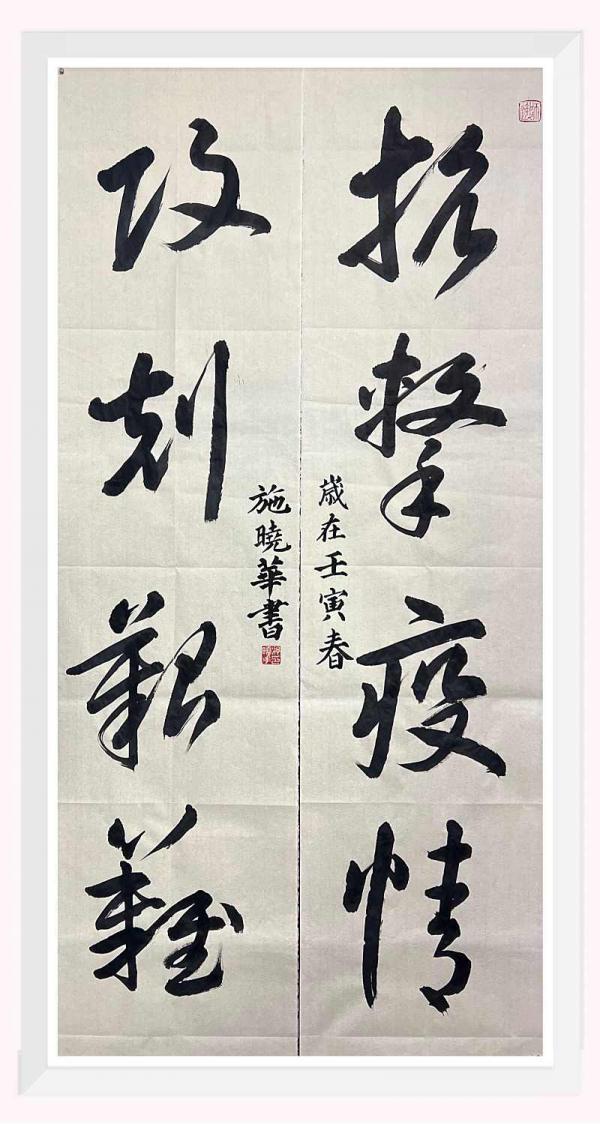 抗擊疫情
歲在壬寅春
攻剋艱難
施曉華書